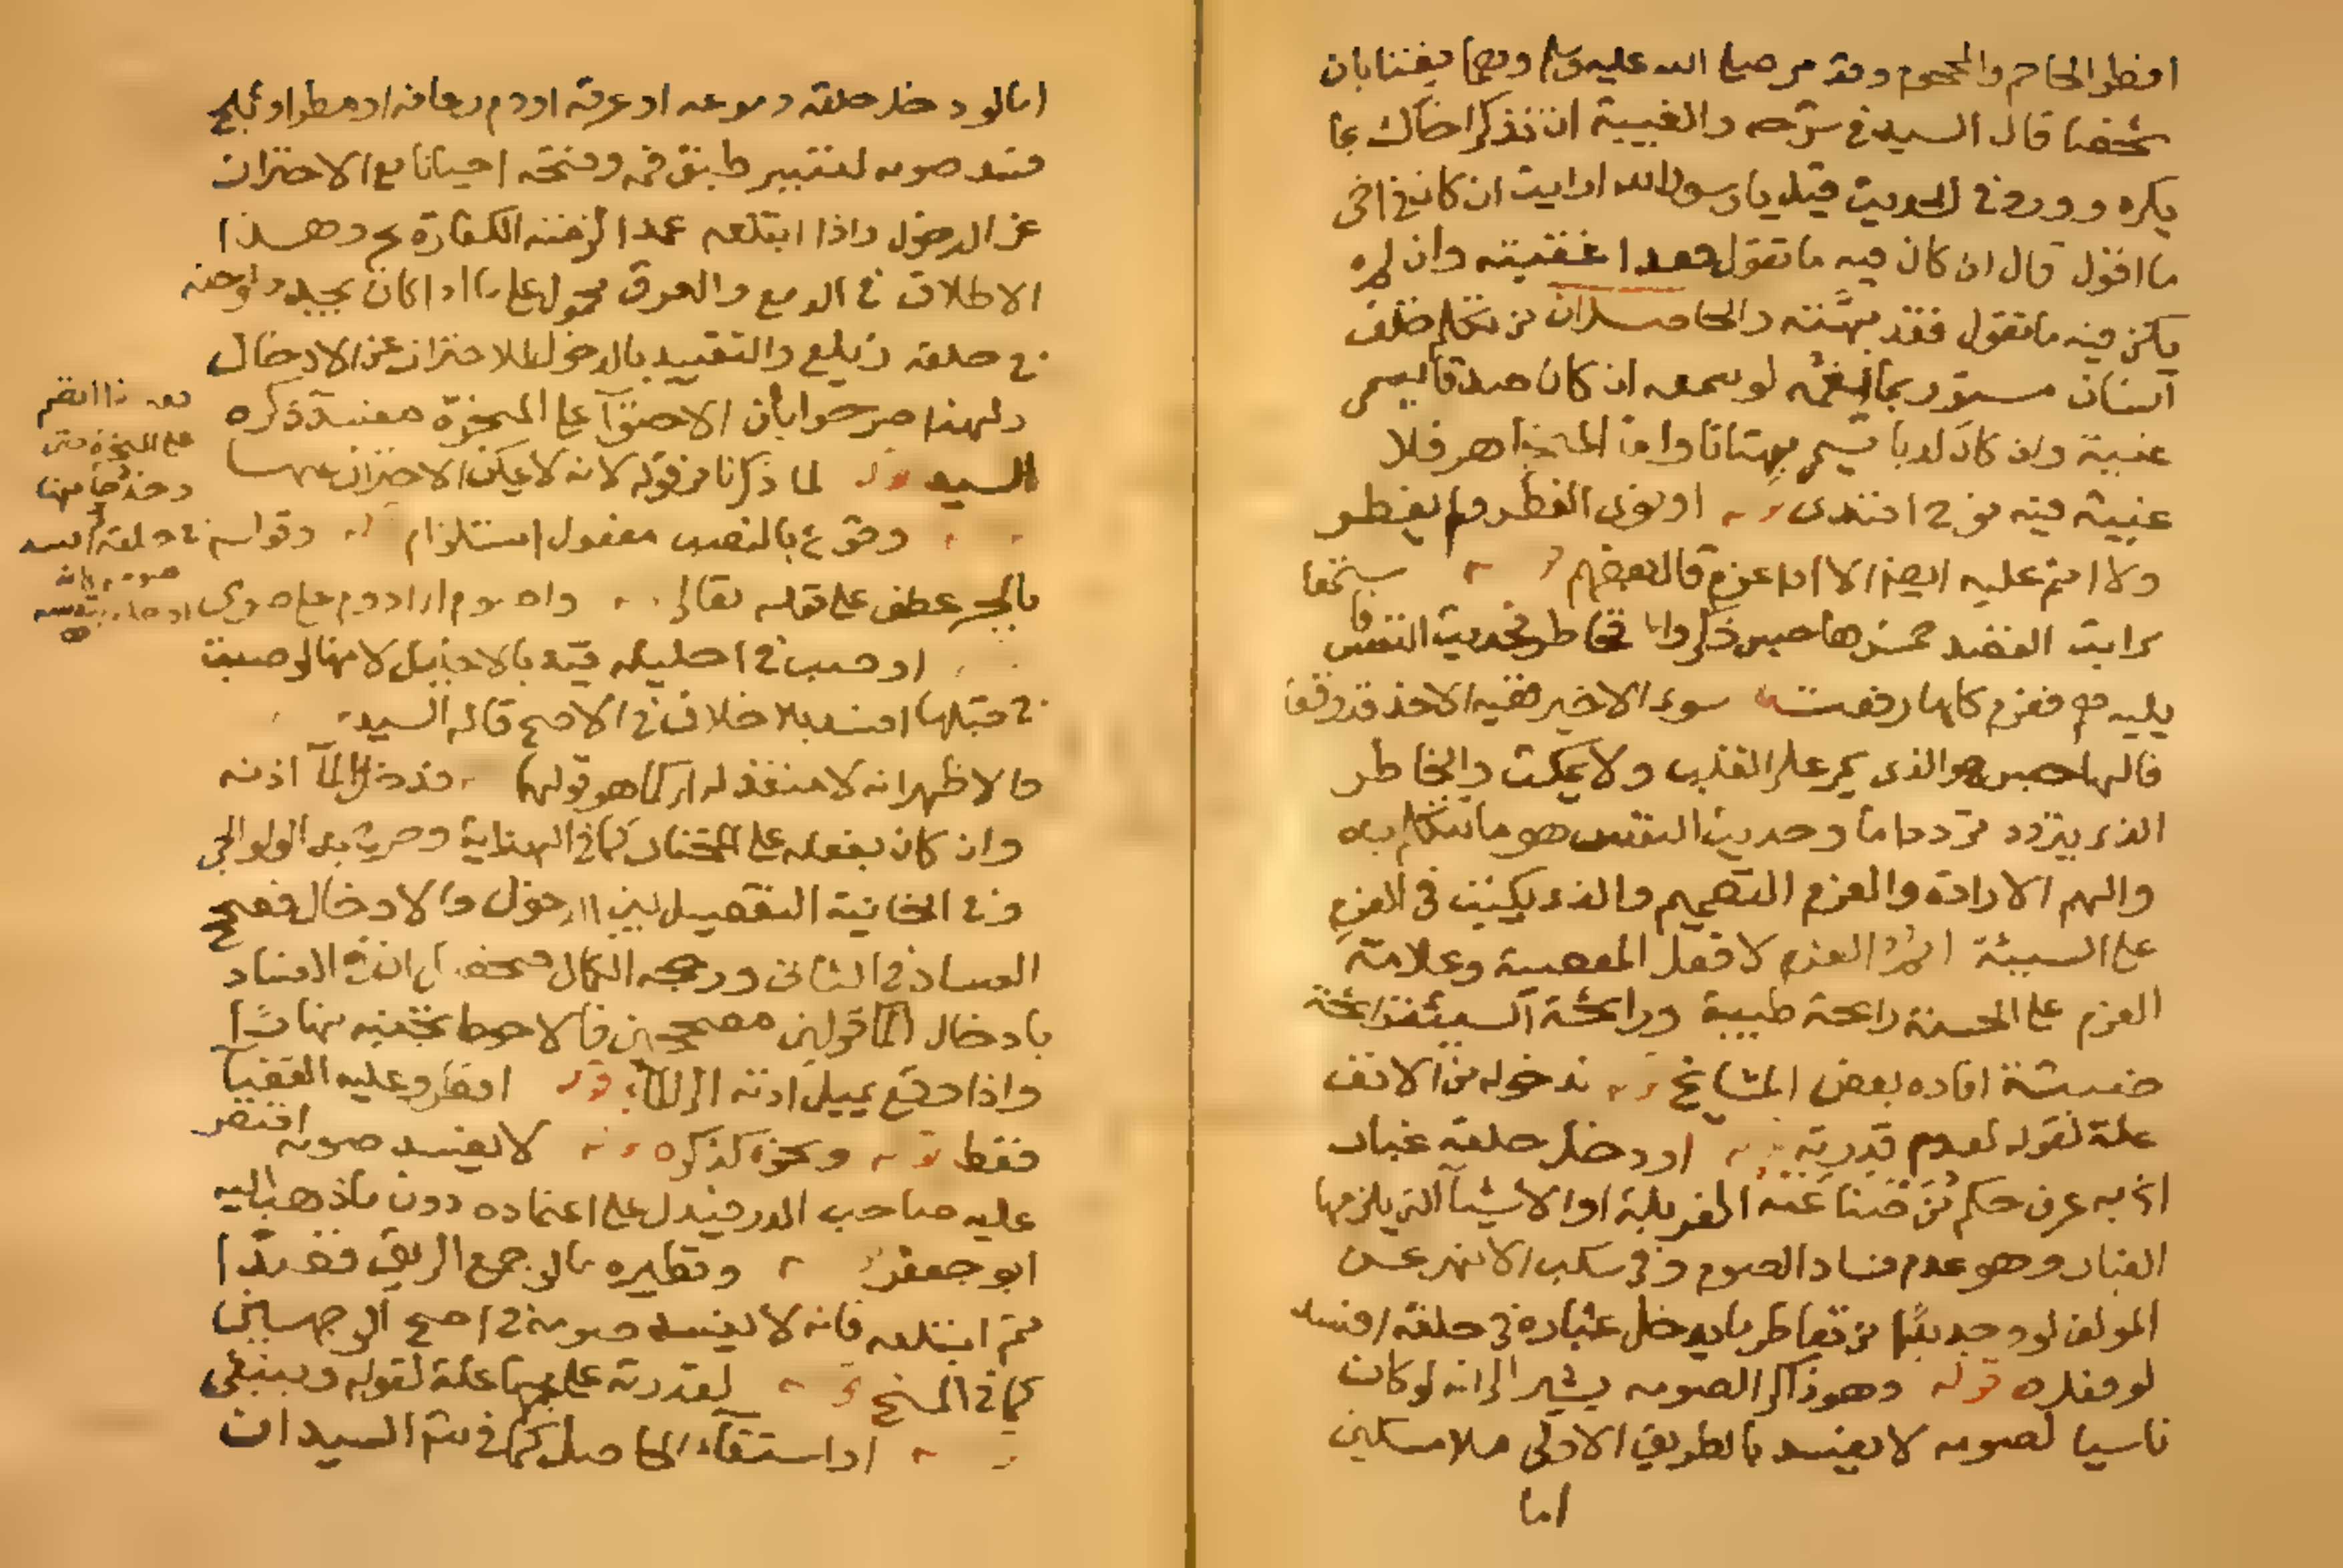 افطر الحاجم والمحجوم وقد مر صلى الله عليه وسلم وهما يغتابان
شخصا قال السيد في شرحه والغيبة ان تذكر اخاك بما
يكره وورد في الحديث قيل يا رسول الله ارايت ان كان في اخي
ما اقول قال ان كان فيه ما تقول فقد اغتبته وان لم
يكن فيه ما تقول فقد بهته والحاصل ان من تكلم خلف
انسان مستور بما يغمه لو سمعه ان كان صدقا يسمى
غيبة وان كان كذبا يسمى بهتانا واما المتجاهر فلا
غيبة فيه نوح افندى او نوى الفطر ولم يفطر
ولا اثم عليه ايضا الا اذا عزم قال بعضهم
مراتب القصد خمس هاجس ذكروا فخاطر فحديث النفس فاستمعا
يليه هم فعزم كلها رفعت سوى الاخير ففيه الاخذ قد وقعا
فالهاجس هو الذى يمر على القلب ولا يمكث والخاطر
الذى يتردد تردد ما وحديث النفس هو ما يتكلم به
والهم الارادة والعزم التصميم والذى يكتب في العزم
على السيئة العزم لا فعل المعصية وعلامة
العزم على الحسنة رائحة طيبة ورائحة السيئة رائحة
خبيثة افاده بعض المشايخ لدخوله من الانف
علة لقوله لعدم قدرته او دخل حلقه غبار
اى به عرف حكم من صناعته الغربلة او الاشياء التى يلزمها
الغبار وهو عدم فساد الصوم وفي سكب الانهر عن
المؤلف لو وجد بدا من تعاطى ما يدخل غباره في حلقه افسد
لو فعله قوله وهو ذاكر لصومه يشير الى انه لو كان
ناسيا لصومه لا يفسد بالطريق الاولى ملا مسكين
اما
اما لو دخل حلقه دموعه او عرقه او دم رعافه او مطر او ثلج
فسد صومه لتيسر طبق فمه وفتحه احيانا مع الاحتراز
عن الدخول واذا ابتلعه عمدا لزمته الكفارة بحر وهذا
الاطلاق في الدمع والعرق محمول على ما اذا كان يجد ملوحته
في حلقه زيلعي والتقييد بالدخول للاحتراز عن الادخال
ولهذا صرحوا بان الاحتواء على المبخرة مفسد ذكره
السيد قوله لما ذكرنا من قوله لانه لا يمكن الاحتراز عنها
وقوع بالنصب مفعول استلزام وقوله
بالجر عطف على قوله تعالى
او صب في احليله قيد بالاحليل لانها لو صبت
في قبلها افسد بلا خلاف في الاصح قاله السيد
والاظهر انه لا منفذ له كما هو قولها فدخل الماء اذنه
وان كان بفعله على المختار كما في الهداية وصرح به الولوالجي
وفي الخانية التفصيل بين الدخول والادخال فصحح
الفساد في الثانى ورجحه الكمال فتحصل ان في الافساد
بادخال الماء قولين مصححين فالاحوط تجنبه نهارا
واذا وقع يميل اذنه الى الماء قوله افطر وعليه القضاء
فقط ونحوه كذكره لا يفسد صومه اقتصر
عليه صاحب الدر فيدل على اعتماده دون ما ذهب اليه
ابو جعفر ونظيره ما لو جمع الريق قصدا
ثم ابتلعه فانه لا يفسد صومه في اصح الوجهين
كما في المنح لقدرته على مجها علة لقوله وينبغى
او استقاء الحاصل كما في شرح السيد ان
بعد ذا انضم
على المبخرة حتى
دخانها
في حلقه افسد